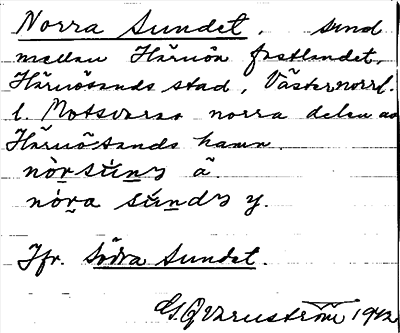 Norra Sundet, sund
mellan Härnön fastlandet,
Härnösands stad, Västernorrl.
l. Motsvarar norra delen av
Härnösands hamn.
nòrsúnɜ ä.
nóra súndɜ y.
Jfr. Södra Sundet.
1942